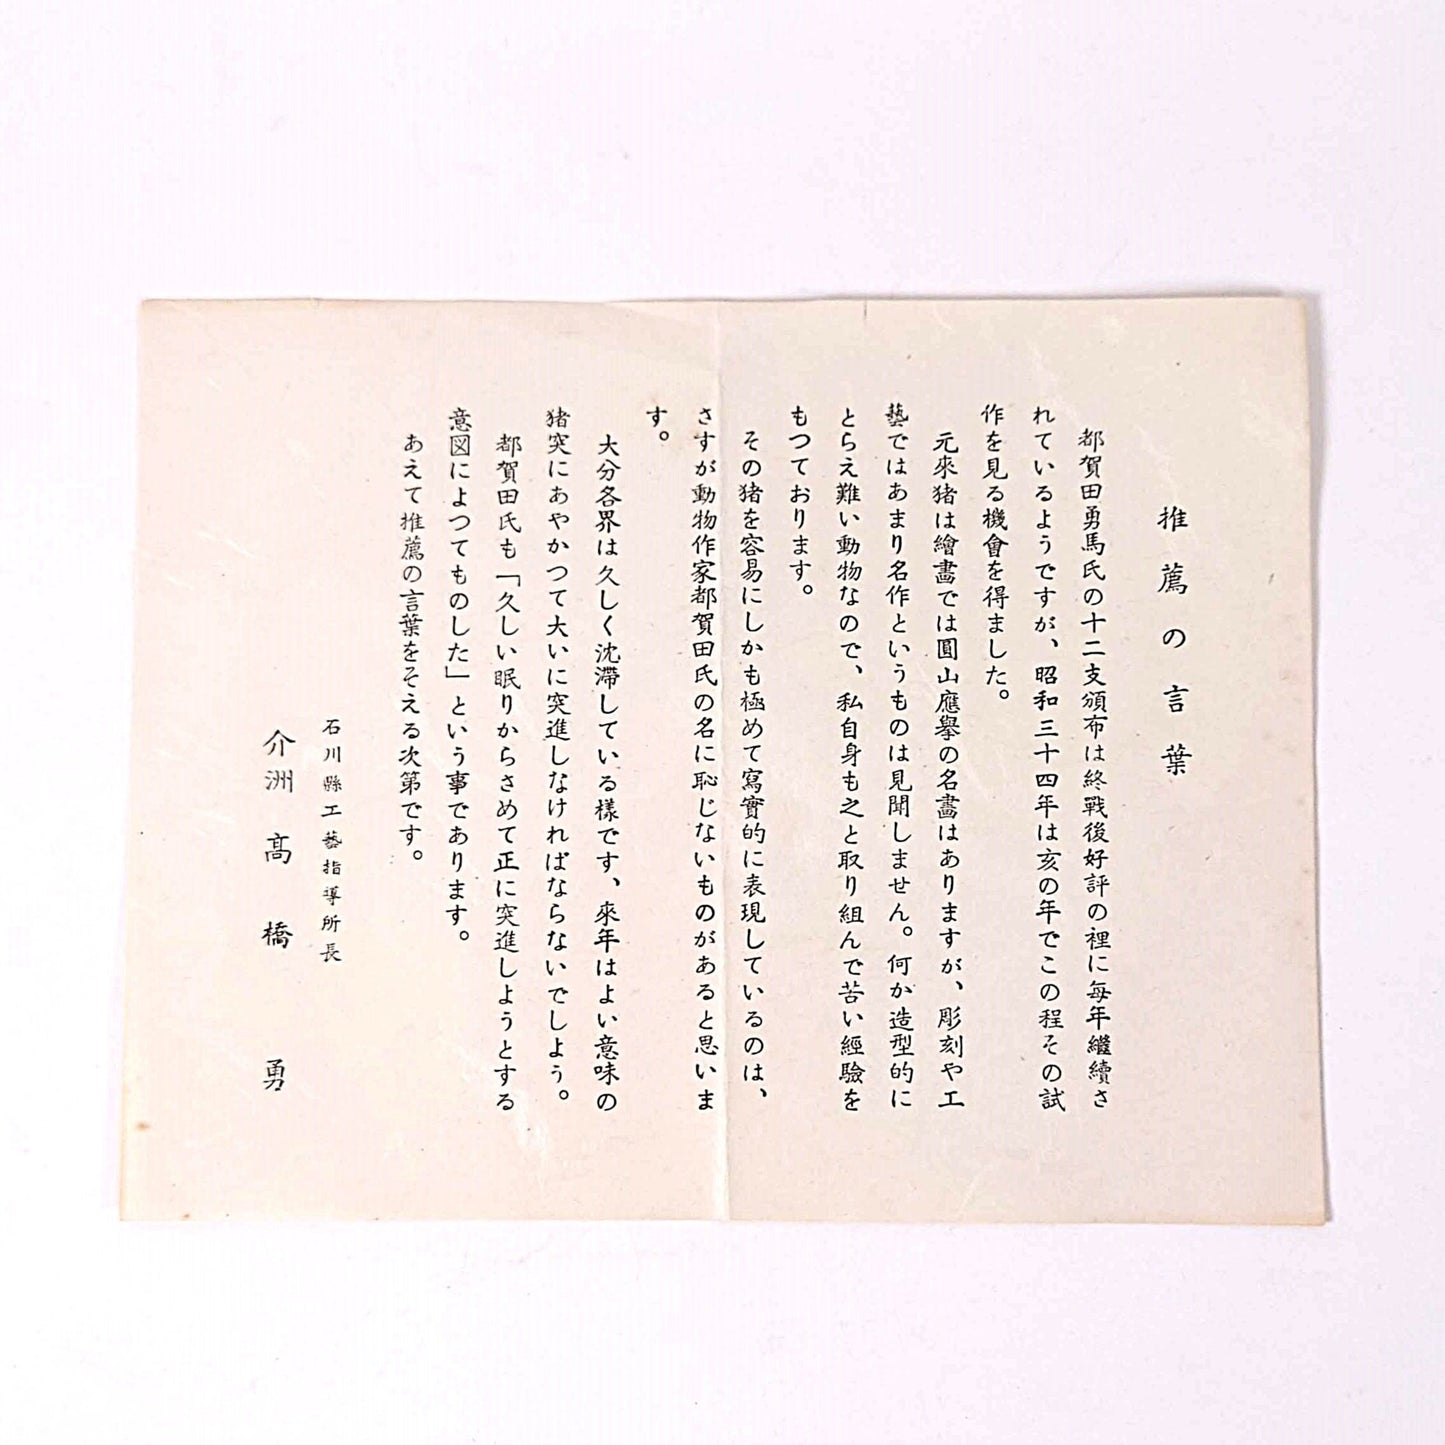 推薦の言葉
都賀田勇馬氏の十二支頒布は終戰後好評の裡に每年繼續さ
れているようですが、昭和三十四年は亥の年でこの程その試
作を見る機會を得ました。
元來猪は繪畵では圓山應擧の名畵はありますが、彫刻や工
藝ではあまり名作というものは見聞しません。何か造型的に
とらえ難い動物なので、私自身も之と取り組んで苦い經驗を
もつております。
その猪を容易にしかも極めて寫實的に表現しているのは、
さすが動物作家都賀田氏の名に恥じないものがあると思いま
す。
大分各界は久しく沈滯している樣です、來年はよい意味の
猪突にあやかつて大いに突進しなければならないでしよう。
都賀田氏も「久しい眠りからさめて正に突進しようとする
意図によつてものした」という事であります。
あえて推薦の言葉をそえる次第です。
石川縣工藝指導所長
介洲 高橋 勇